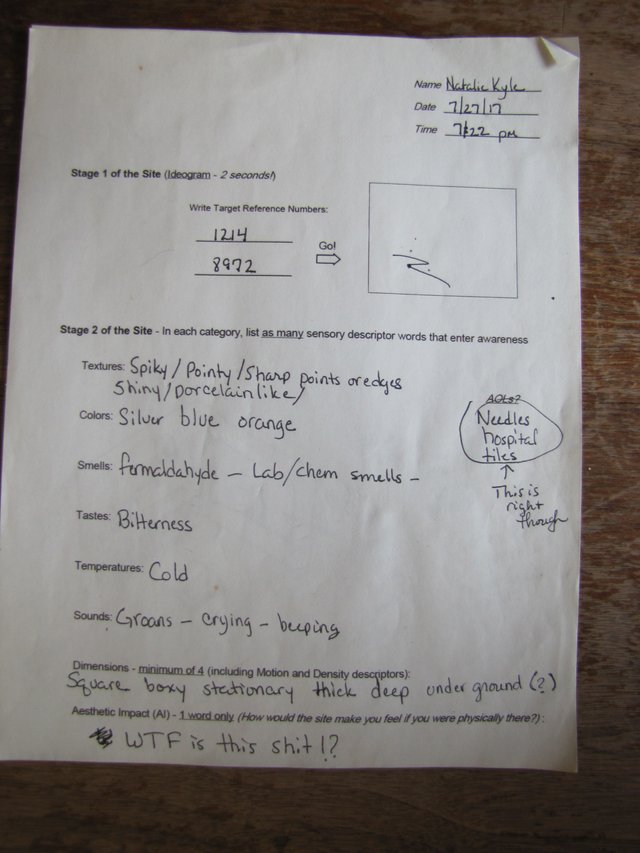 Name Natalie Kyle
Date 7/27/17
Time 7:22 pm
Stage 1 of the Site (Ideogram - 2 seconds!)
Write Target Reference Numbers:
1214
8972
Go!
Stage 2 of the Site - In each category, list as many sensory descriptor words that enter awareness
Textures: Spiky/Pointy/Sharp points or edges
Shiny/porcelainlike/
Colors: Silver blue orange
AOLs?
Needles
hospital
tiles
This is
right
though
Smells: formaldahyde - Lab/chem smells -
Tastes: Bitterness
Temperatures: Cold
Sounds: Groans - crying - beeping
Dimensions - minimum of 4 (including Motion and Density descriptors):
Square boxy stationary thick deep under ground (?)
Aesthetic Impact (AI) - 1 word only (How would the site make you feel if you were physically there?):
WTF is this shit!?